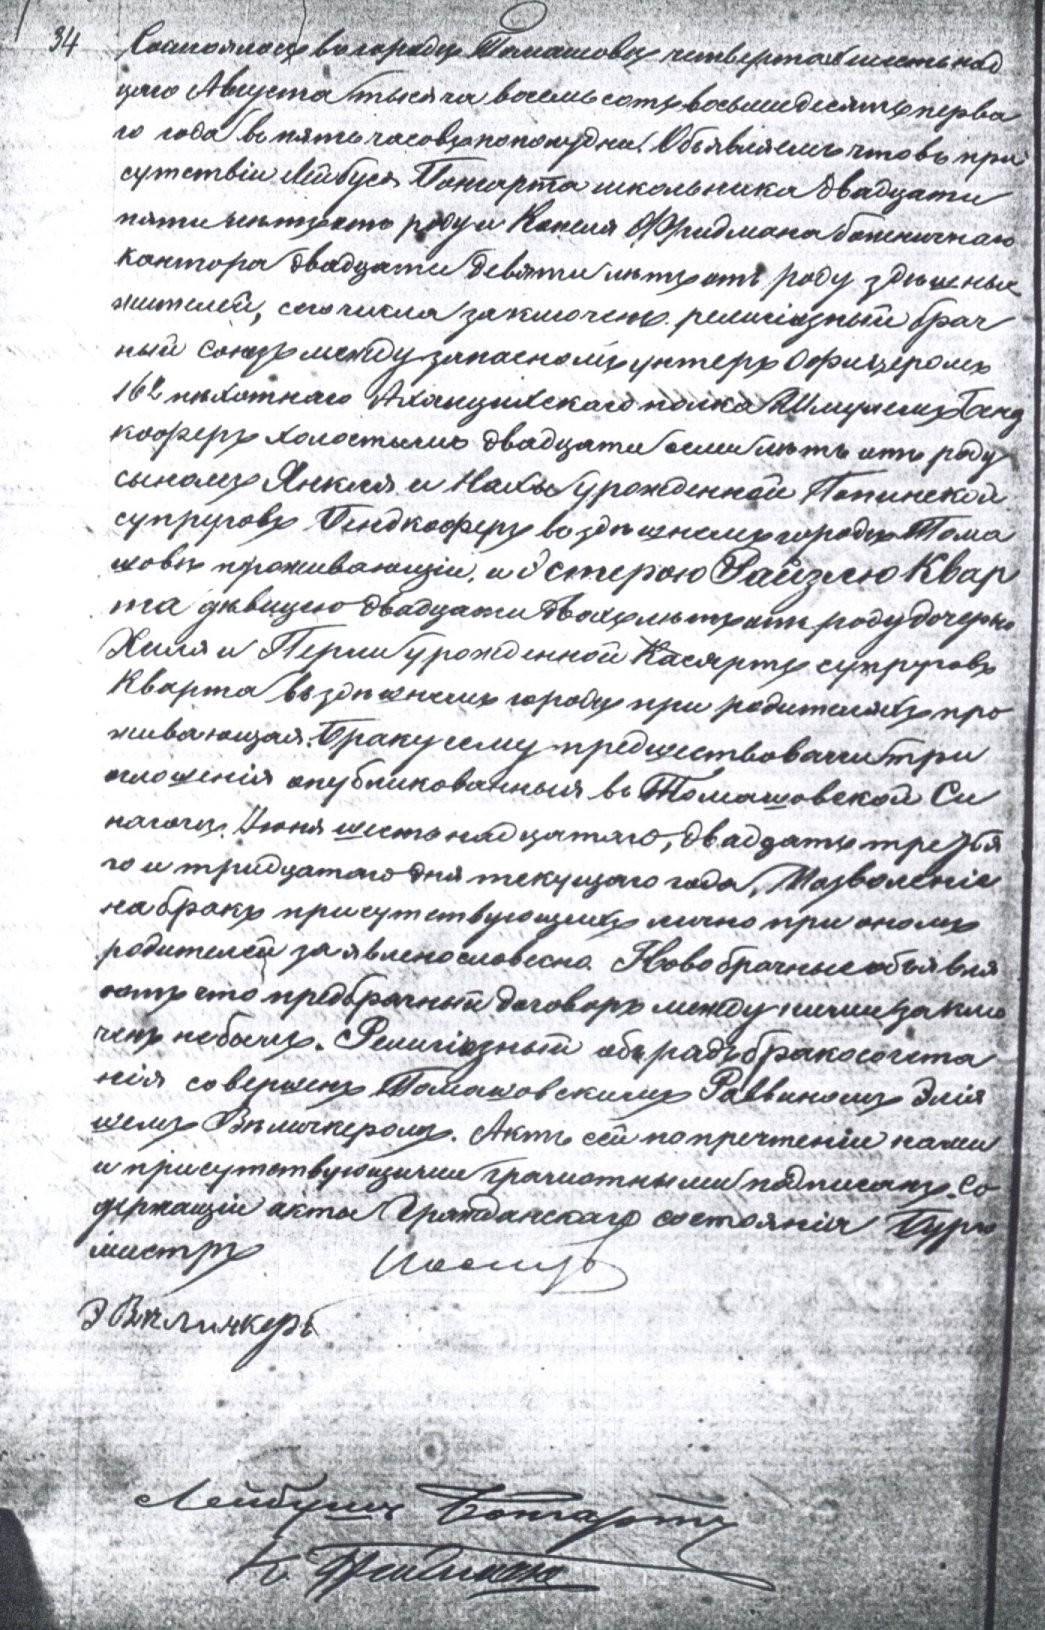 34 Состоялось въ городѣ Томашовѣ четвертаго шестьнад
цаго Августа тысяча восемьсотъ восьмидесятъ перва
го года въ пять часовъ пополудни. Объявляемъ что въ при
сутствіи Лейбуся Бомгарта школьника двадцати
пяти лѣтъ отъ роду и Фридмана божничнаго
кантора двадцати девяти лѣтъ отъ роду здѣшныхъ
жителей, сего числа заключенъ религіозный брач
ный союзъ между запаснымъ унтеръ офицеромъ
162 пѣхотнаго Ахалцихскаго полка Шмулемъ Бенд
коферъ холостымъ двадцати семи лѣтъ отъ роду
сыномъ Янкля и урожденной
супруговъ Бендкоферъ въ здѣшнемъ городѣ Тома
шовѣ проживающій, и Эстерою Райзлею Квар
та дѣвицею двадцати двохъ лѣтъ отъ роду дочерью
Хиля и Перли урожденной супруговъ
Кварта въ здѣшнемъ городѣ при родителяхъ про
живающая. Браку сему предшествовали три
оглошенія опубликованныя въ Томашовской Си
нагогѣ Июня шестьнадцатого, двадцать третья
го и тридцатого дня текущаго года, Позволеніе
на бракъ присутствующихъ лично при ономъ
родителей заявлено словесно. Новобрачные объявля
ютъ что предбрачный договоръ между ними заклю
ченъ небылъ. Религіозный обрядъ бракосочета
нія совершенъ Томашовскимъ Раввиномъ Элія
шемъ Вѣличкеромъ. Актъ сей по прочтеніи нами
и присутствующими грамотными подписанъ. Со
держащій акты Гражданскаго состоянія Бурго
мистръ
Э Вѣличкеръ
Лейбушъ Бомгартъ
К Фридманъ